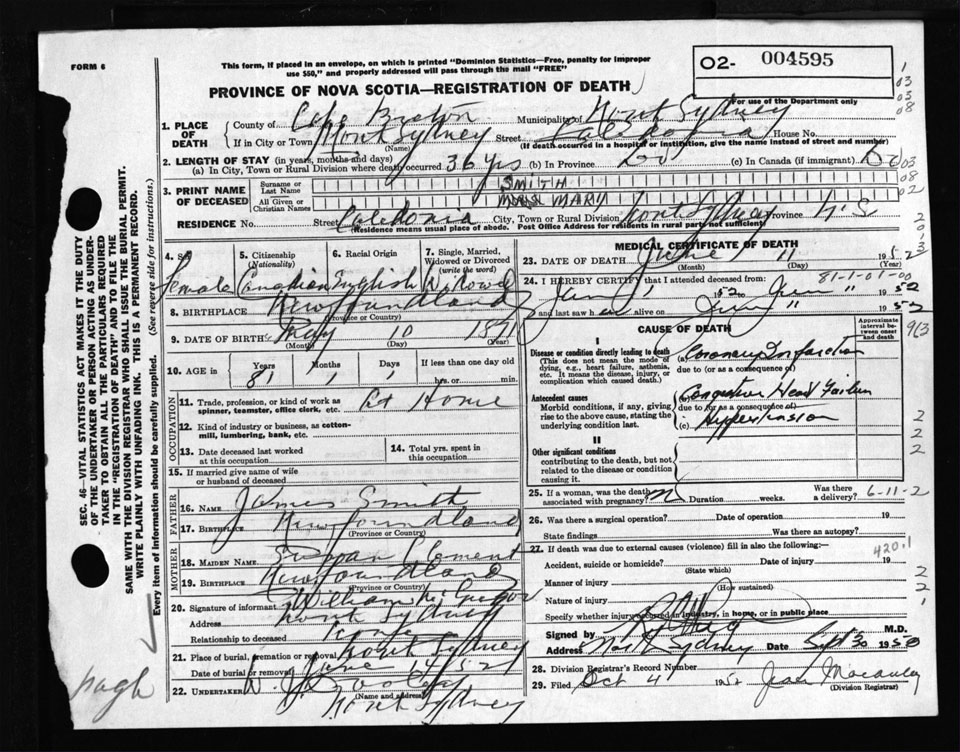 FORM 6
This form, if placed in an envelope, on which is printed "Dominion Statistics—Free, penalty for improper
use $50," and properly addressed will pass through the mail "FREE"
O2- 004595
For use of the Department only
PROVINCE OF NOVA SCOTIA—REGISTRATION OF DEATH
1. PLACE OF DEATH
County of Cape Breton Municipality of North Sydney
If in City or Town North Sydney Street Caledonia House No.
(Name) (If death occurred in a hospital or institution, give the name instead of street and number)
2. LENGTH OF STAY (in years, months and days)
(a) In City, Town or Rural Division where death occurred 36 yrs (b) In Province (c) In Canada (if immigrant)
3. PRINT NAME OF DECEASED
Surname or Last Name SMITH
All Given or Christian Names MARY
RESIDENCE No. Street Caledonia City, Town or Rural Division North Sydney Province N.S
(Residence means usual place of abode. Post Office Address for residents in rural parts not sufficient)
4. SEX Female
5. CITIZENSHIP (Nationality) Canadian
6. Racial Origin English
7. Single, Married, Widowed or Divorced (write the word) Widowed
8. BIRTHPLACE Newfoundland
(Province or Country)
9. DATE OF BIRTH May 10 1871
(Month) (Day) (Year)
10. AGE in Years Months Days If less than one day old
81 1 1 hrs. or min.
OCCUPATION
11. Trade, profession, or kind of work as spinner, teamster, office clerk, etc. At Home
12. Kind of industry or business, as cotton-mill, lumbering, bank, etc.
13. Date deceased last worked at this occupation
14. Total yrs. spent in this occupation
15. If married give name of wife or husband of deceased
FATHER
16. NAME James Smith
17. BIRTHPLACE Newfoundland
(Province or Country)
MOTHER
18. MAIDEN NAME Clement
19. BIRTHPLACE Newfoundland
(Province or Country)
20. Signature of informant William McGregor
Address North Sydney
Relationship to deceased
21. Place of burial, cremation or removal North Sydney
Date of burial or removal June 14 52
22. UNDERTAKER
(Name and address)
North Sydney
MEDICAL CERTIFICATE OF DEATH
23. DATE OF DEATH June 11 195
(Month) (Day) (Year)
81-1-01-00
24. I HEREBY CERTIFY that I attended deceased from:
1952 June " 1952
and last saw h alive on " 1952
CAUSE OF DEATH
Approximate interval between onset and death
I
Disease or condition directly leading to death
(This does not mean the mode of dying, e.g., heart failure, asthenia, etc. It means the disease, injury, or complication which caused death.)
(a) Coronary Infarction
due to (or as a consequence of)
Antecedent causes
Morbid conditions, if any, giving rise to the above cause, stating the underlying condition last.
Congestive Heart Failure
due to (or as a consequence of)
(c) Hypertension
II
Other significant conditions
contributing to the death, but not related to the disease or condition causing it.
25. If a woman, was the death associated with pregnancy? Duration weeks. Was there a delivery? 6-11-2
26. Was there a surgical operation? Date of operation 19
State findings Was there an autopsy?
27. If death was due to external causes (violence) fill in also the following:—
420.1
Accident, suicide or homicide? Date of injury 19
(State which)
Manner of injury
(How sustained)
Nature of injury
Specify whether injury occurred in industry, in home, or in public place
Signed by M.D.
Address North Sydney Date Sept 30 195
28. Division Registrar's Record Number
29. Filed Oct 4 195 Jean Macaulay
(Division Registrar)
SEC. 46—VITAL STATISTICS ACT MAKES IT THE DUTY
OF THE UNDERTAKER OR PERSON ACTING AS UNDER-
TAKER TO OBTAIN ALL THE PARTICULARS REQUIRED
IN THE "REGISTRATION OF DEATH" AND TO FILE THE
SAME WITH THE DIVISION REGISTRAR WHO SHALL ISSUE THE BURIAL PERMIT.
WRITE PLAINLY WITH UNFADING INK. THIS IS A PERMANENT RECORD.
Every item of information should be carefully supplied. (See reverse side for instructions.)